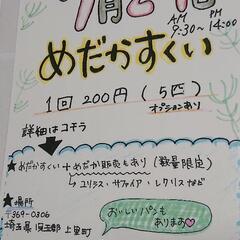 7月2
AM PM
9:30~14:00
めだかすくい
1回 200円(5匹)
オプションあり
詳細はコチラ
★めだかすくい+めだか販売もあり(数量限定)
ユリシス・サファイア・レクリスなど
★場所
〒369-0306
埼玉県児玉郡上里町
おいしいパンも
ありま